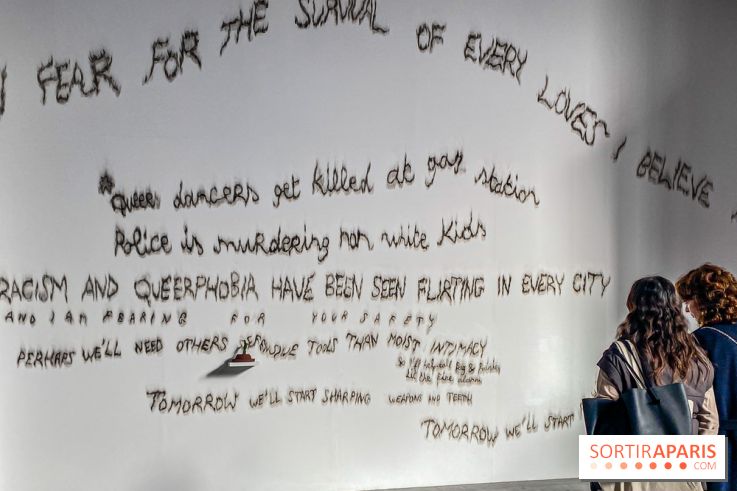 I FEAR FOR THE SURVIVAL OF EVERY LOVES I BELIEVE
*Queer dancers get killed at gas station
Police is murdering non white kids
RACISM AND QUEERPHOBIA HAVE BEEN SEEN FLIRTING IN EVERY CITY
AND I AM FEARING FOR YOUR SAFETY
PERHAPS WE'LL NEED OTHERS DEFENSIVE TOOLS THAN MOIST INTIMACY
TOMORROW WE'LL START SHARPING WEAPONS AND TEETH
TOMORROW WE'LL START
SORTIRAPARIS
.COM